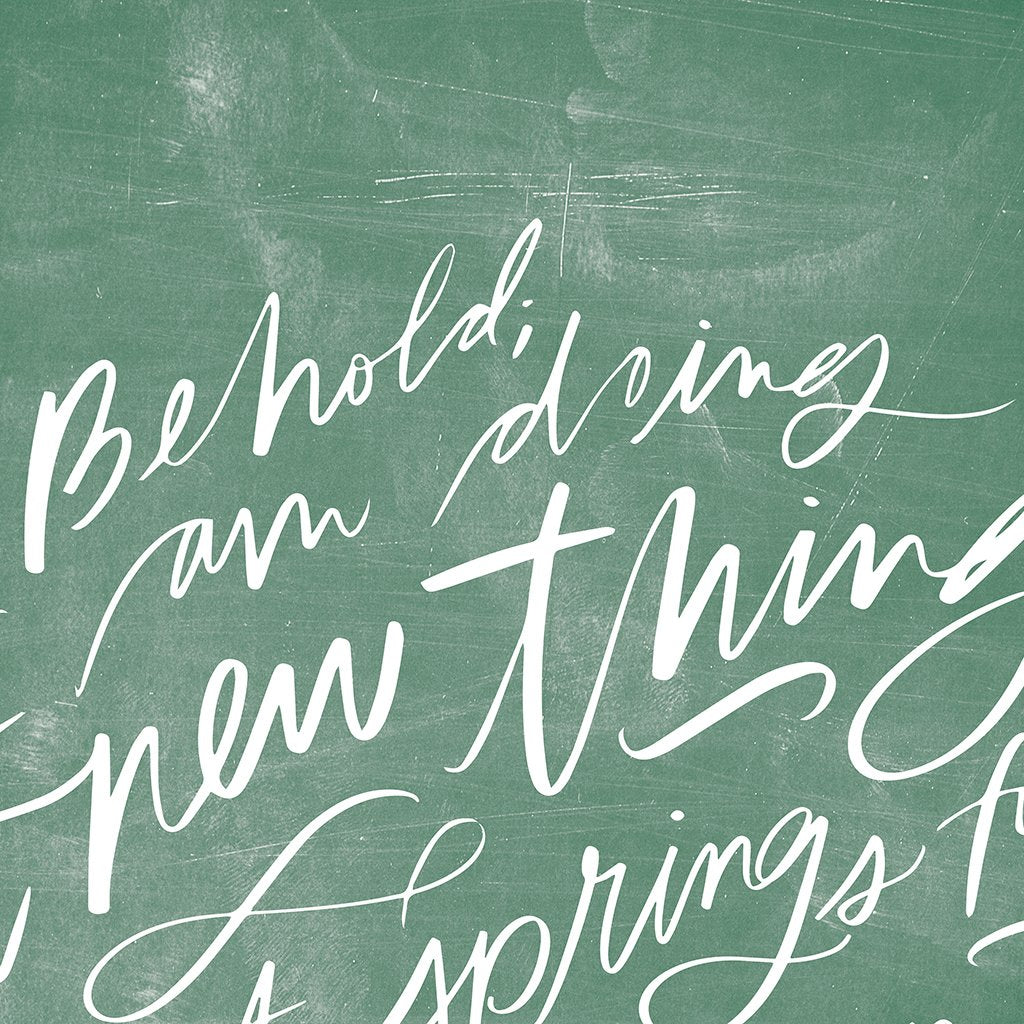 Behold;
am doing
new thing
springs